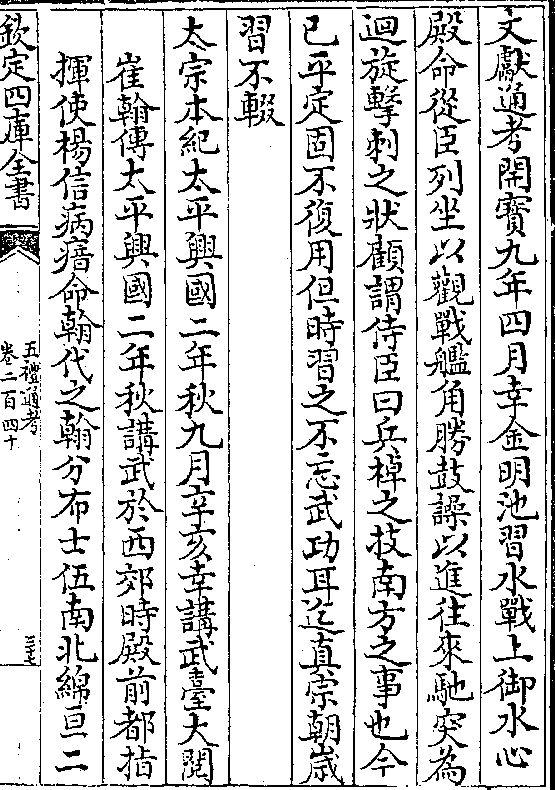 文獻通考開寳九年四月幸金明池習水戰上御水心
殿命從臣列坐以觀戰艦角勝鼓譟以進往來馳突為
迴旋擊刺之狀顧謂侍臣曰兵棹之技南方之事也今
已平定固不復用但時習之不忘武功耳迄真宗朝歲
習不輟
太宗本紀太平興國二年秋九月辛亥幸講武臺大閱
崔翰傳太平興國二年秋講武於西郊時殿前都指
揮使楊信病瘖命翰代之翰分布士伍南北綿亘二
欽定四庫全書
五禮通考
卷二百四十
三十七